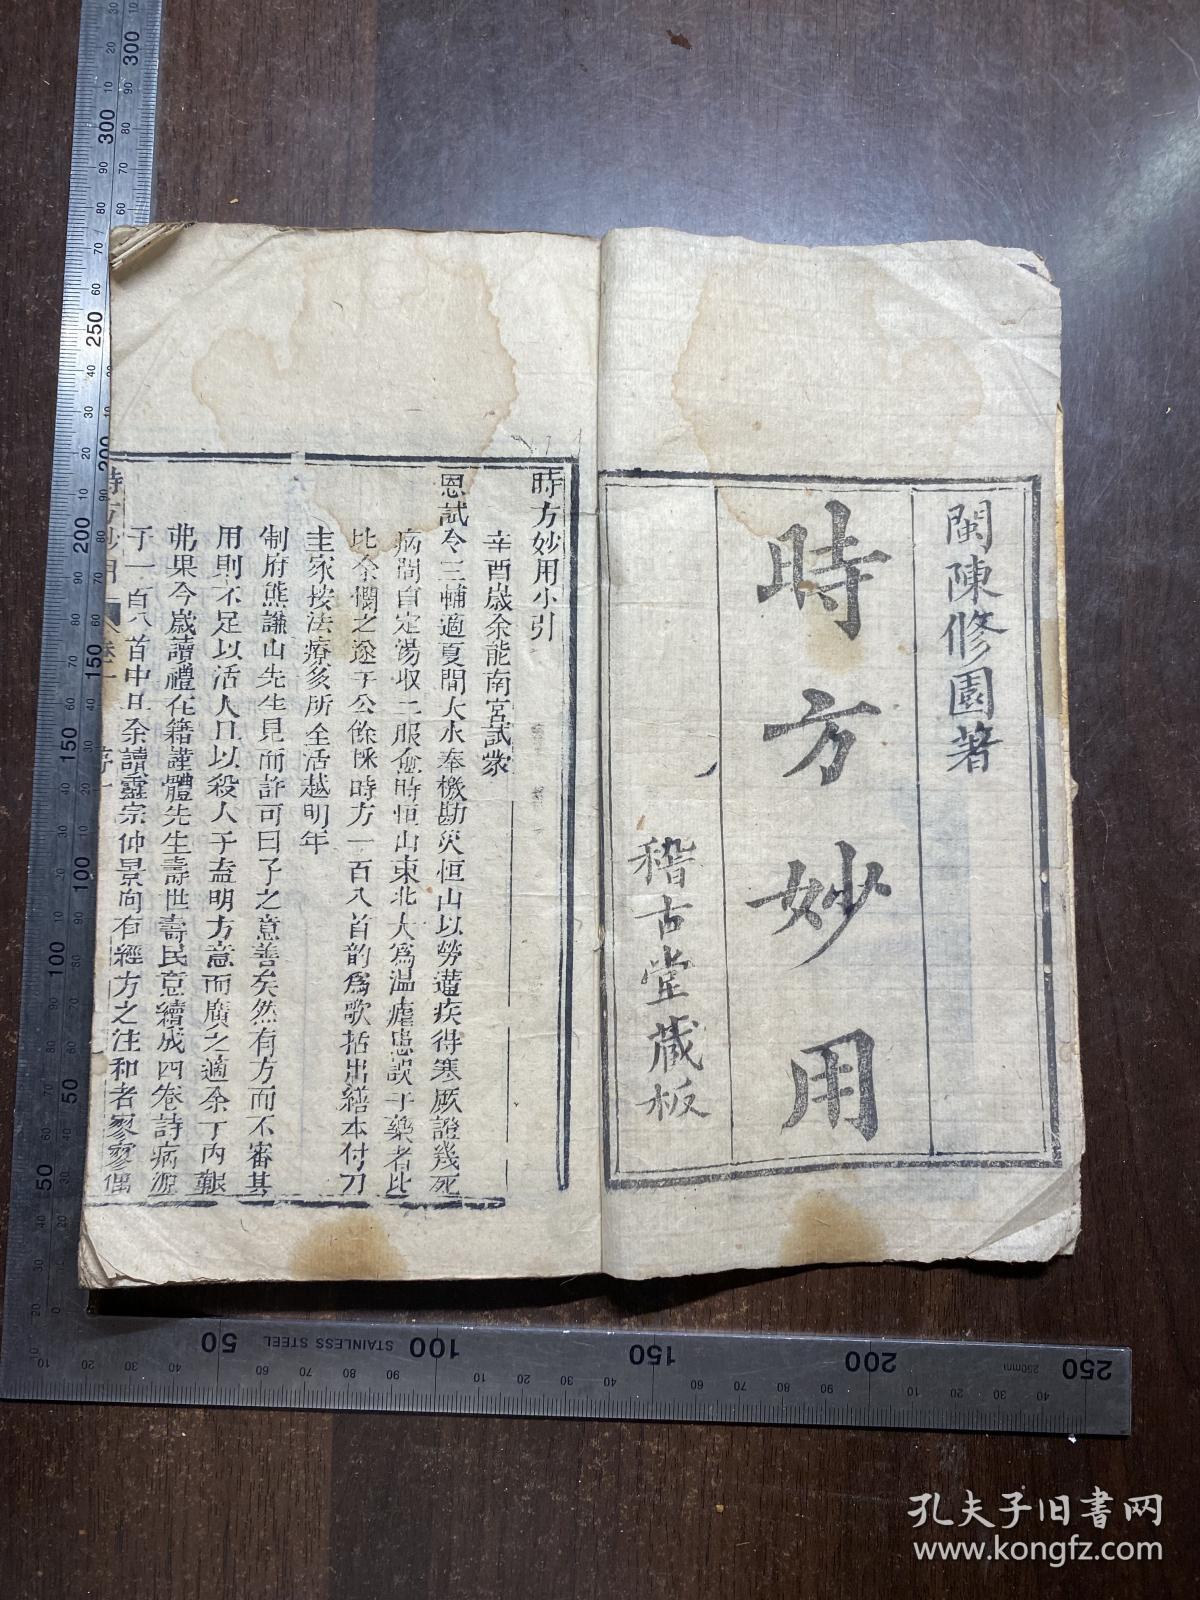 閩陳修園著
時方妙用
稽古堂藏板
時方妙用小引
辛酉歲余能南宮試蒙
恩試令三輔適夏間大水奉檄勘災恒山以勞遘疾得寒厥證幾死
病間自定湯取二服愈時恒山東北大為温瘧患誤于藥者比
比余憫之遂于公餘採時方一百八首韵為歌括出繕本付刀
圭家按法療多所全活越明年
制府熊謙山先生見而許可曰子之意善矣然有方而不審其
用則不足以活人且以殺人子盍明方意而廣之適余丁内艱
弗果今歲讀禮在籍謹體先生壽世壽民意續成四卷詩病源
于一百八首中且余讀靈宗仲景向有經方之注和者寥寥偶
時方妙用 卷一 序一
STAINLESS STEEL
孔夫子旧书网
www.kongfz.com